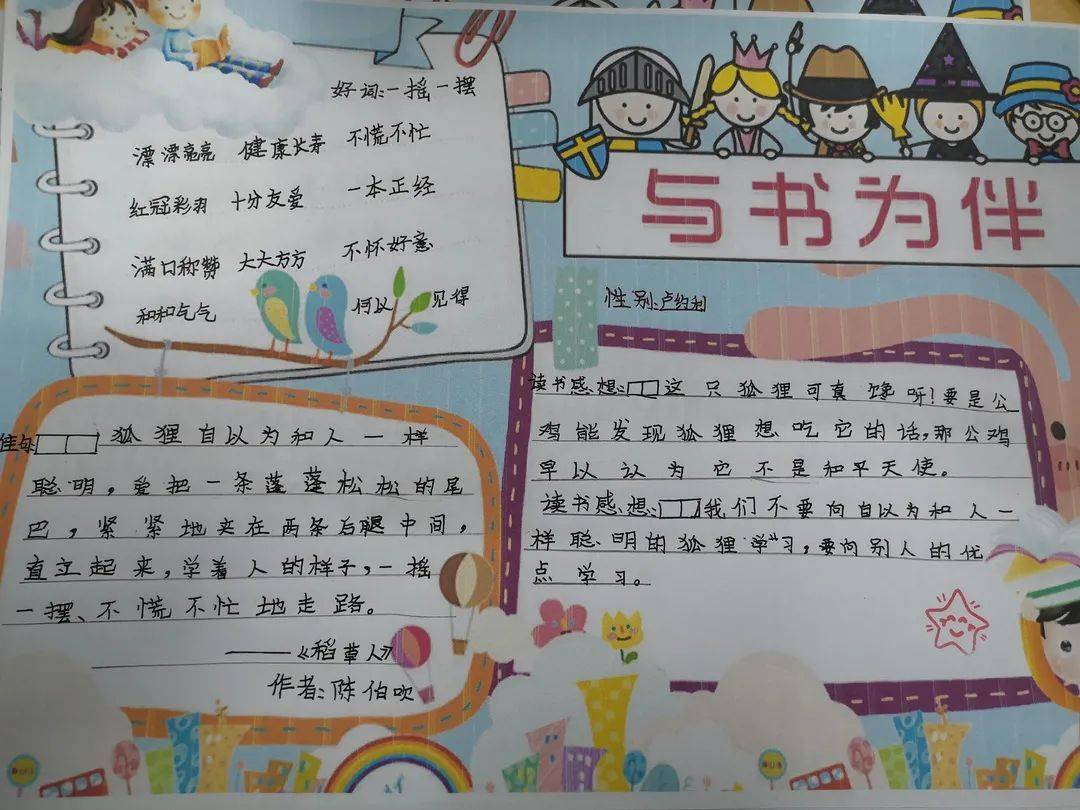 好词:一摇一摆
漂漂亮亮 健康长寿 不慌不忙
红冠彩羽 十分友爱 一本正经
满口称赞 大大方方 不怀好意
和和气气 何以见得
与书为伴
性别:卢约利
佳句 狐狸自以为和人一样
聪明，爱把一条蓬蓬松松的尾
巴，紧紧地夹在两条后腿中间，
直立起来，学着人的样子，一摇
一摆、不慌不忙地走路。
——《稻草人》
作者:陈伯吹
读书感想: 这只狐狸可真馋呀！要是公
鸡能发现狐狸想吃它的话，那公鸡
早以认为它不是和平天使。
读书感想: 我们不要向自以为和人一
样聪明的狐狸学习，要向别人的优
点学习。